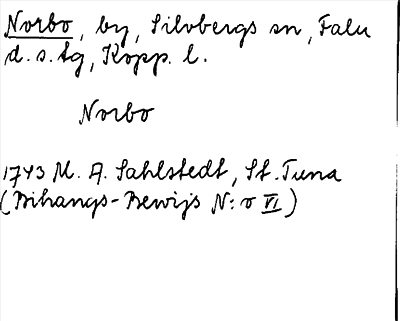 Norbo, by, Silvbergs sn, Falu
d.s.tg, Kopp. l.
Norbo
1743 M. A. Sahlstedt, St. Tuna
(Bihangs-Bewijs N:o VI)